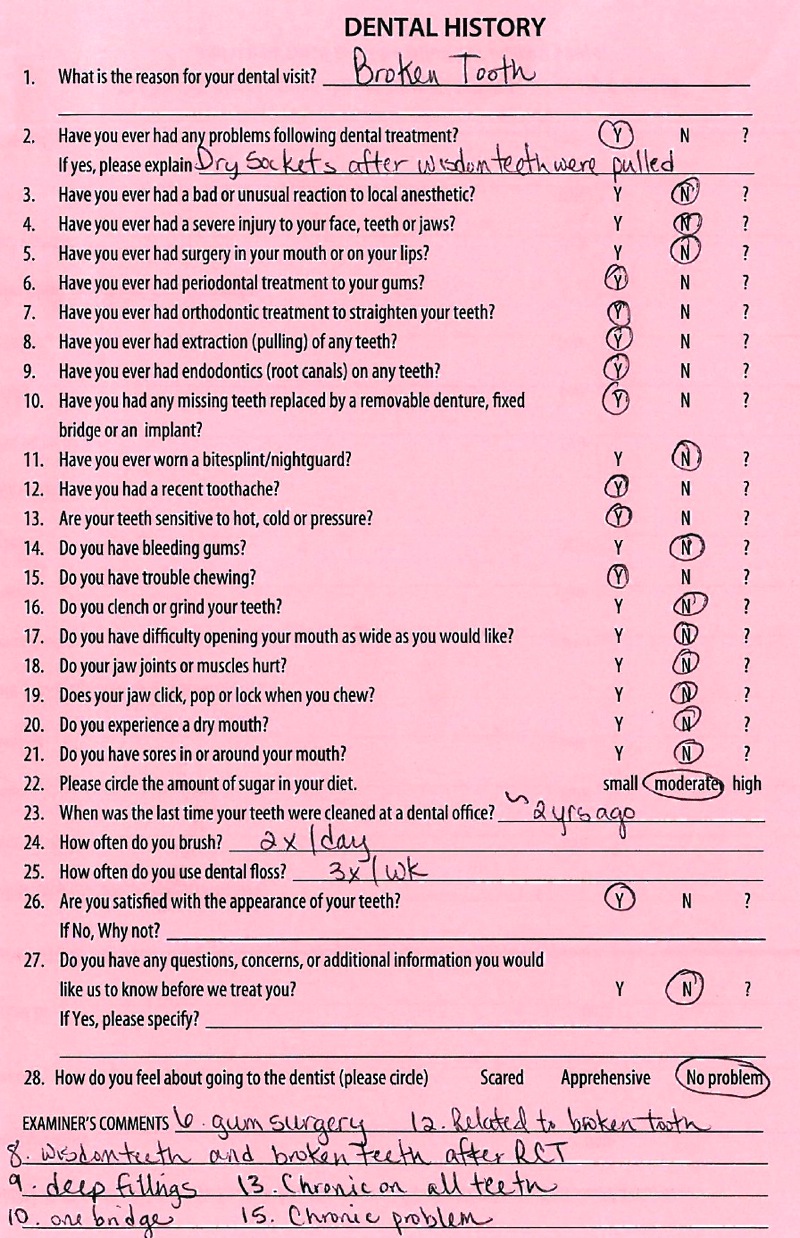 DENTAL HISTORY
1. What is the reason for your dental visit? Broken Tooth
2. Have you ever had any problems following dental treatment? Y N ?
If yes, please explain Dry Sockets after wisdom teeth were pulled
3. Have you ever had a bad or unusual reaction to local anesthetic? Y N ?
4. Have you ever had a severe injury to your face, teeth or jaws? Y N ?
5. Have you ever had surgery in your mouth or on your lips? Y N ?
6. Have you ever had periodontal treatment to your gums? Y N ?
7. Have you ever had orthodontic treatment to straighten your teeth? Y N ?
8. Have you ever had extraction (pulling) of any teeth? Y N ?
9. Have you ever had endodontics (root canals) on any teeth? Y N ?
10. Have you had any missing teeth replaced by a removable denture, fixed Y N ?
bridge or an implant?
11. Have you ever worn a bitesplint/nightguard? Y N ?
12. Have you had a recent toothache? Y N ?
13. Are your teeth sensitive to hot, cold or pressure? Y N ?
14. Do you have bleeding gums? Y N ?
15. Do you have trouble chewing? Y N ?
16. Do you clench or grind your teeth? Y N ?
17. Do you have difficulty opening your mouth as wide as you would like? Y N ?
18. Do your jaw joints or muscles hurt? Y N ?
19. Does your jaw click, pop or lock when you chew? Y N ?
20. Do you experience a dry mouth? Y N ?
21. Do you have sores in or around your mouth? Y N ?
22. Please circle the amount of sugar in your diet. small moderate high
23. When was the last time your teeth were cleaned at a dental office? ~ 2 yrs ago
24. How often do you brush? 2x / day
25. How often do you use dental floss? 3x / wk
26. Are you satisfied with the appearance of your teeth? Y N ?
If No, Why not?
27. Do you have any questions, concerns, or additional information you would
like us to know before we treat you? Y N ?
If Yes, please specify?
28. How do you feel about going to the dentist (please circle) Scared Apprehensive No problem
EXAMINER'S COMMENTS 6. gum surgery 12. Related to broken tooth
8. wisdom teeth and broken teeth after RCT
9. deep fillings 13. Chronic on all teeth
10. one bridge 15. Chronic problem